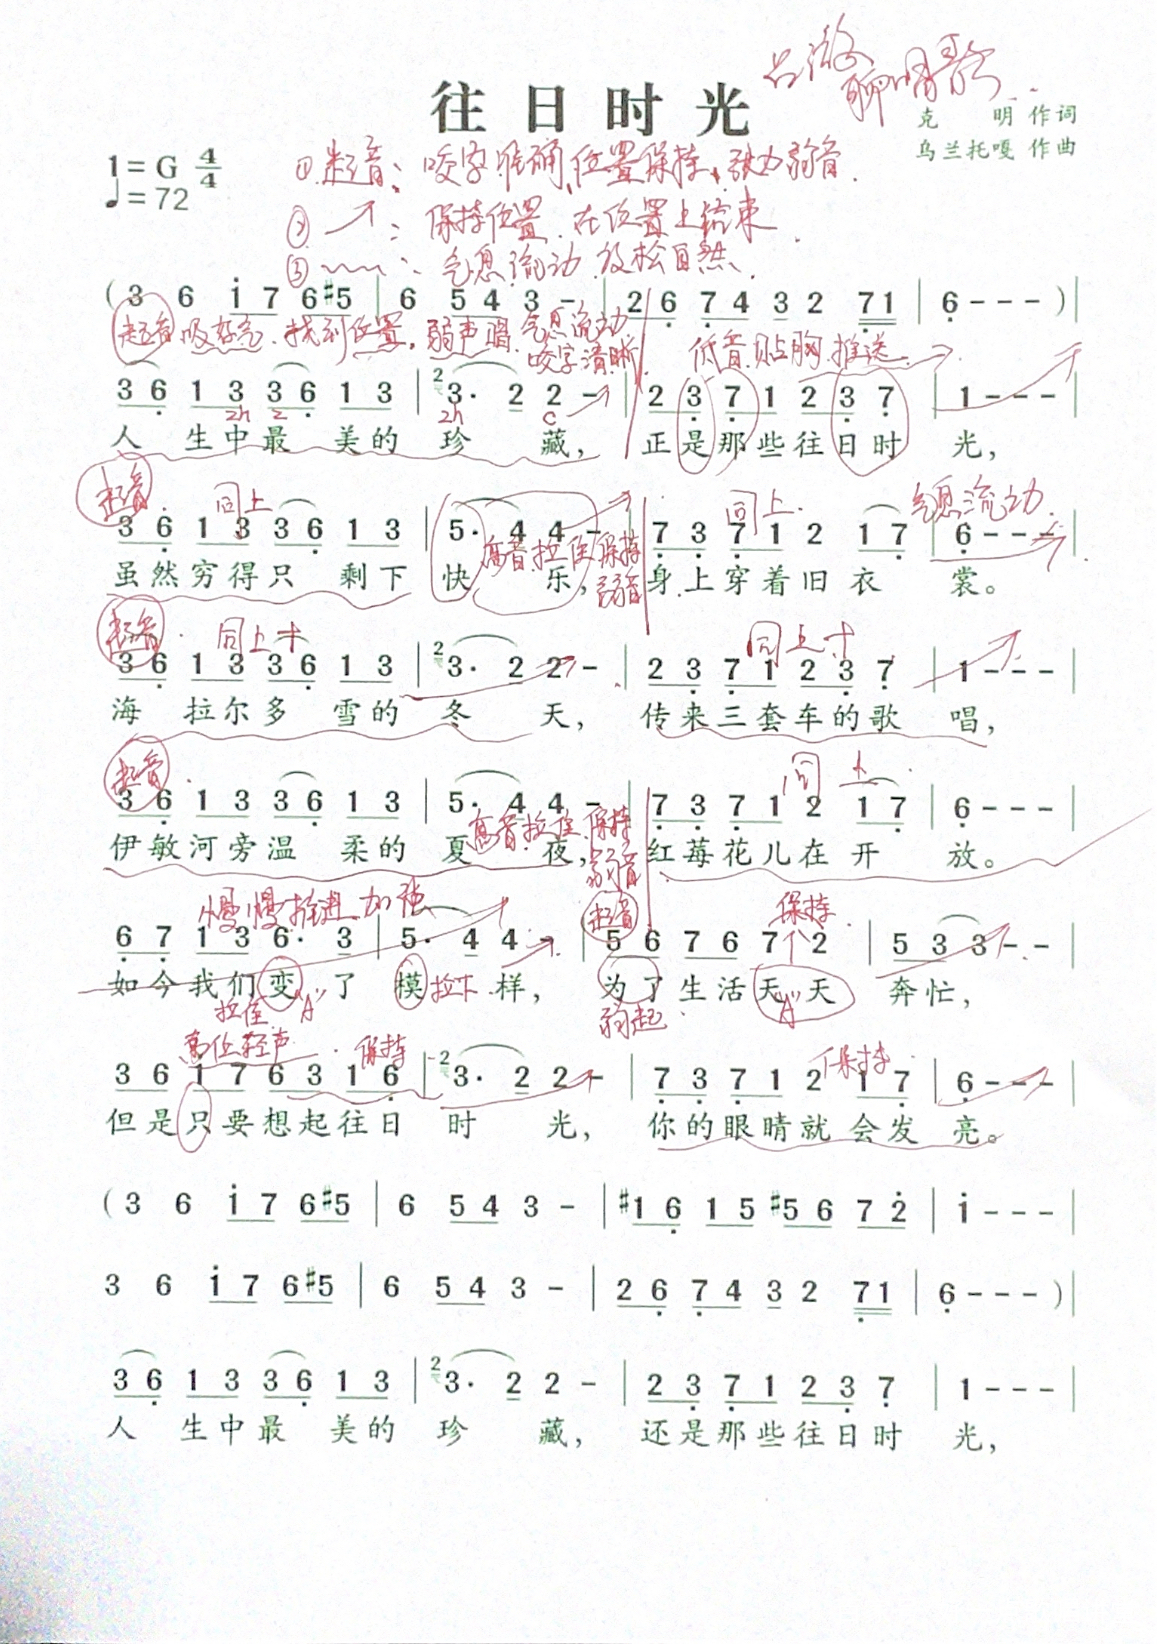 吕澂聊唱歌
往日时光
克 明 作词
1=G 4/4
乌兰托嘎 作曲
♩=72
①起音:咬字准确、位置保持、张力弱音.
②↗:保持位置.在位置上结束.
③﹏﹏:气息流动.放松自然.
( 3 6 i 7 6 #5 | 6 5 4 3 - | 2 6 7 4 3 2 7 1 | 6 - - - ) |
起音 吸好气.找到位置,弱声唱.气息流动 咬字清晰. 低音.贴胸.推送
3 6 1 3 3 6 1 3 | 2 3· 2 2 - | 2 3 7 1 2 3 7 | 1 - - - |
zh z zh c
人 生中最 美的 珍 藏, 正是那些往日时 光,
起音. 同上 同上. 气息流动.
3 6 1 3 3 6 1 3 | 5· 4 4 - | 7 3 7 1 2 1 7 | 6 - - - |
高音.拉住.保持 弱音.
虽然穷得只 剩下 快 乐, 身上穿着旧 衣 裳。
起音. 同上 同上
3 6 1 3 3 6 1 3 | 2 3· 2 2 - | 2 3 7 1 2 3 7 | 1 - - - |
海 拉尔多 雪的 冬 天, 传来三套车的歌 唱,
起音. 同上.
3 6 1 3 3 6 1 3 | 5· 4 4 - | 7 3 7 1 2 1 7 | 6 - - - |
高音.拉住.保持 弱音
伊敏河旁温 柔的 夏 夜, 红莓花儿在 开 放。
慢慢推进.加强 起音 保持.
6 7 1 3 6· 3 | 5· 4 4 - | 5 6 7 6 7 2 | 5 3 3 - - |
如今我们变 了 模 样, 为了生活天 天 奔忙,
拉住."A" 拉下 弱起. "A"
高位轻声. 保持 保持.
3 6 i 7 6 3 1 6 | 2 3· 2 2 - | 7 3 7 1 2 1 7 | 6 - - - |
但是只要想起往日 时 光, 你的眼睛就 会发 亮。
( 3 6 i 7 6 #5 | 6 5 4 3 - | #1 6 1 5 #5 6 7 2 | i - - - |
3 6 i 7 6 #5 | 6 5 4 3 - | 2 6 7 4 3 2 7 1 | 6 - - - ) |
3 6 1 3 3 6 1 3 | 2 3· 2 2 - | 2 3 7 1 2 3 7 | 1 - - - |
人 生中最 美的 珍 藏, 还是那些往日时 光,